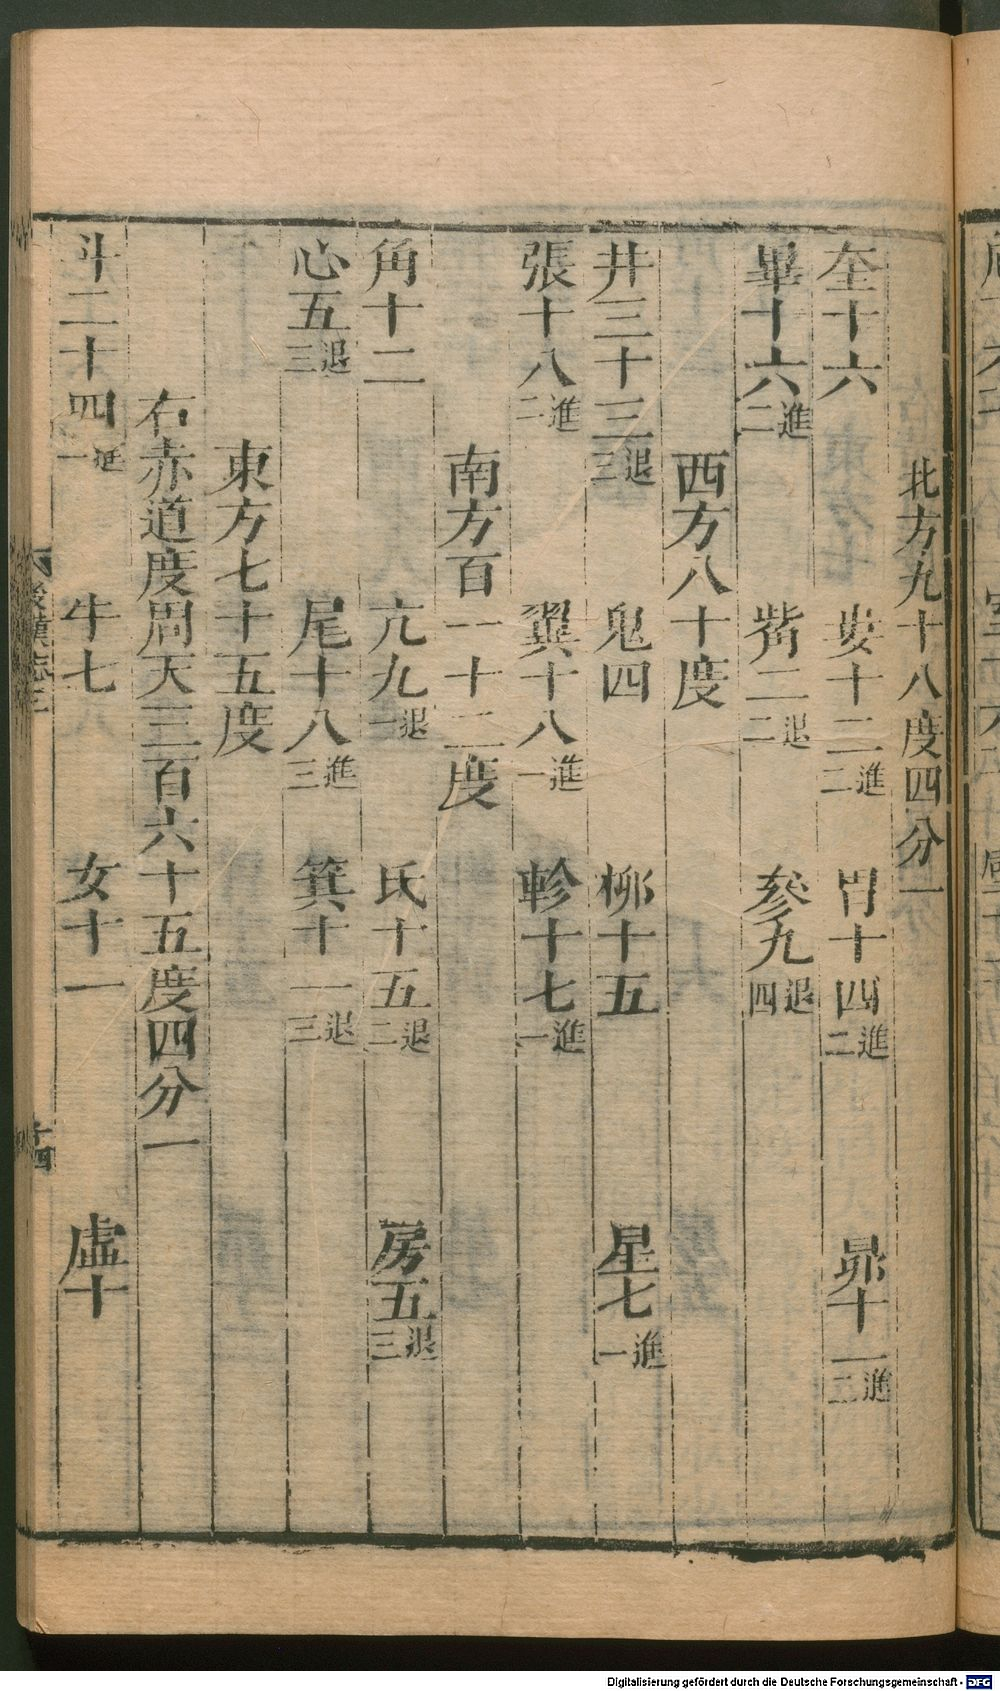 北方九十八度四分一
奎十六 婁十二進二 胃十四進二 昴十一進二
畢十六進二 觜二退二 參九退四
西方八十度
井三十三退三 鬼四 柳十五 星七進一
張十八進二 翼十八進一 軫十七進一
南方百一十二度
角十二 亢九退一 氐十五退二 房五退三
心五退三 尾十八進三 箕十一退三
東方七十五度
右赤道度周天三百六十五度四分一
斗二十四進一 牛七 女十一 虛十
後漢志三
十四
Digitalisierung gefördert durch die Deutsche Forschungsgemeinschaft - DFG